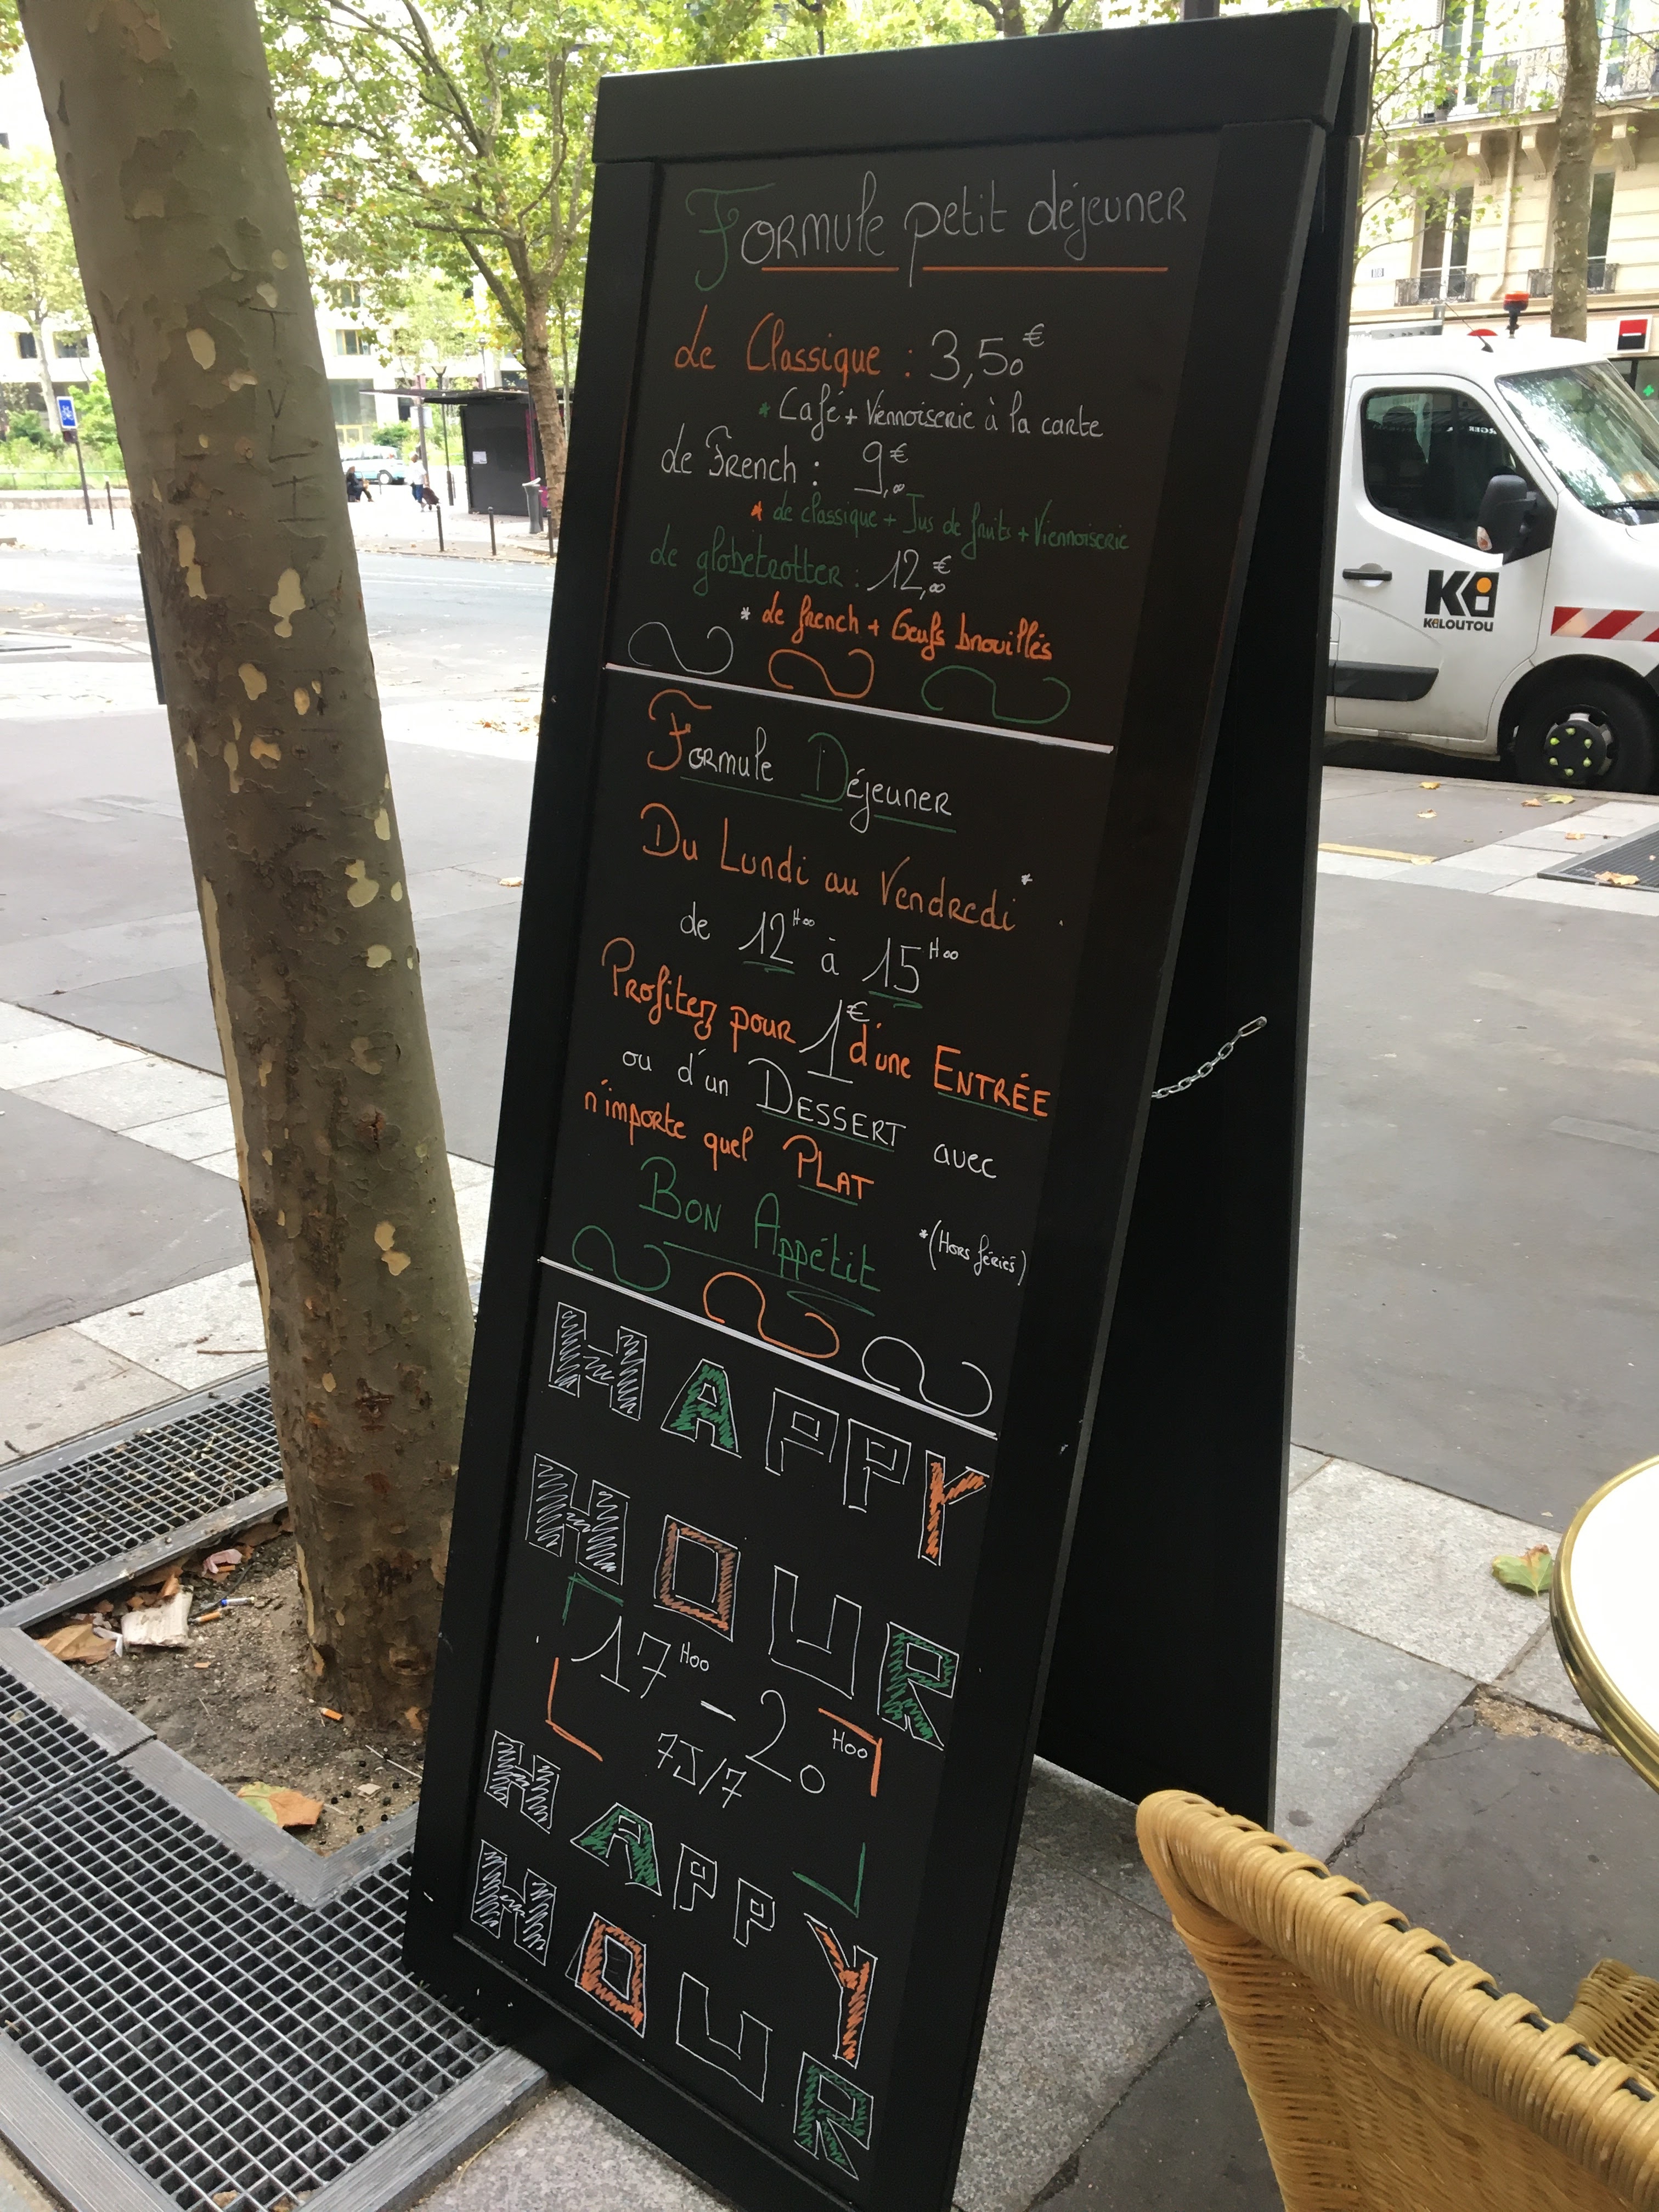 Formule petit déjeuner
Le Classique : 3,50€
* Café + Viennoiserie à la carte
Le French : 9,00€
* Le classique + Jus de fruits + Viennoiserie
Le globetrotter : 12,00€
* Le french + Oeufs brouillés
Formule Déjeuner
Du Lundi au Vendredi*
de 12H00 à 15H00
Profitez pour 1€ d'une ENTRÉE
ou d'un DESSERT avec
n'importe quel PLAT
BON Appétit
*(Hors fériés)
HAPPY
HOUR
17H00 - 20H00
7J/7
HAPPY
HOUR
Ki
KiLOUTOU